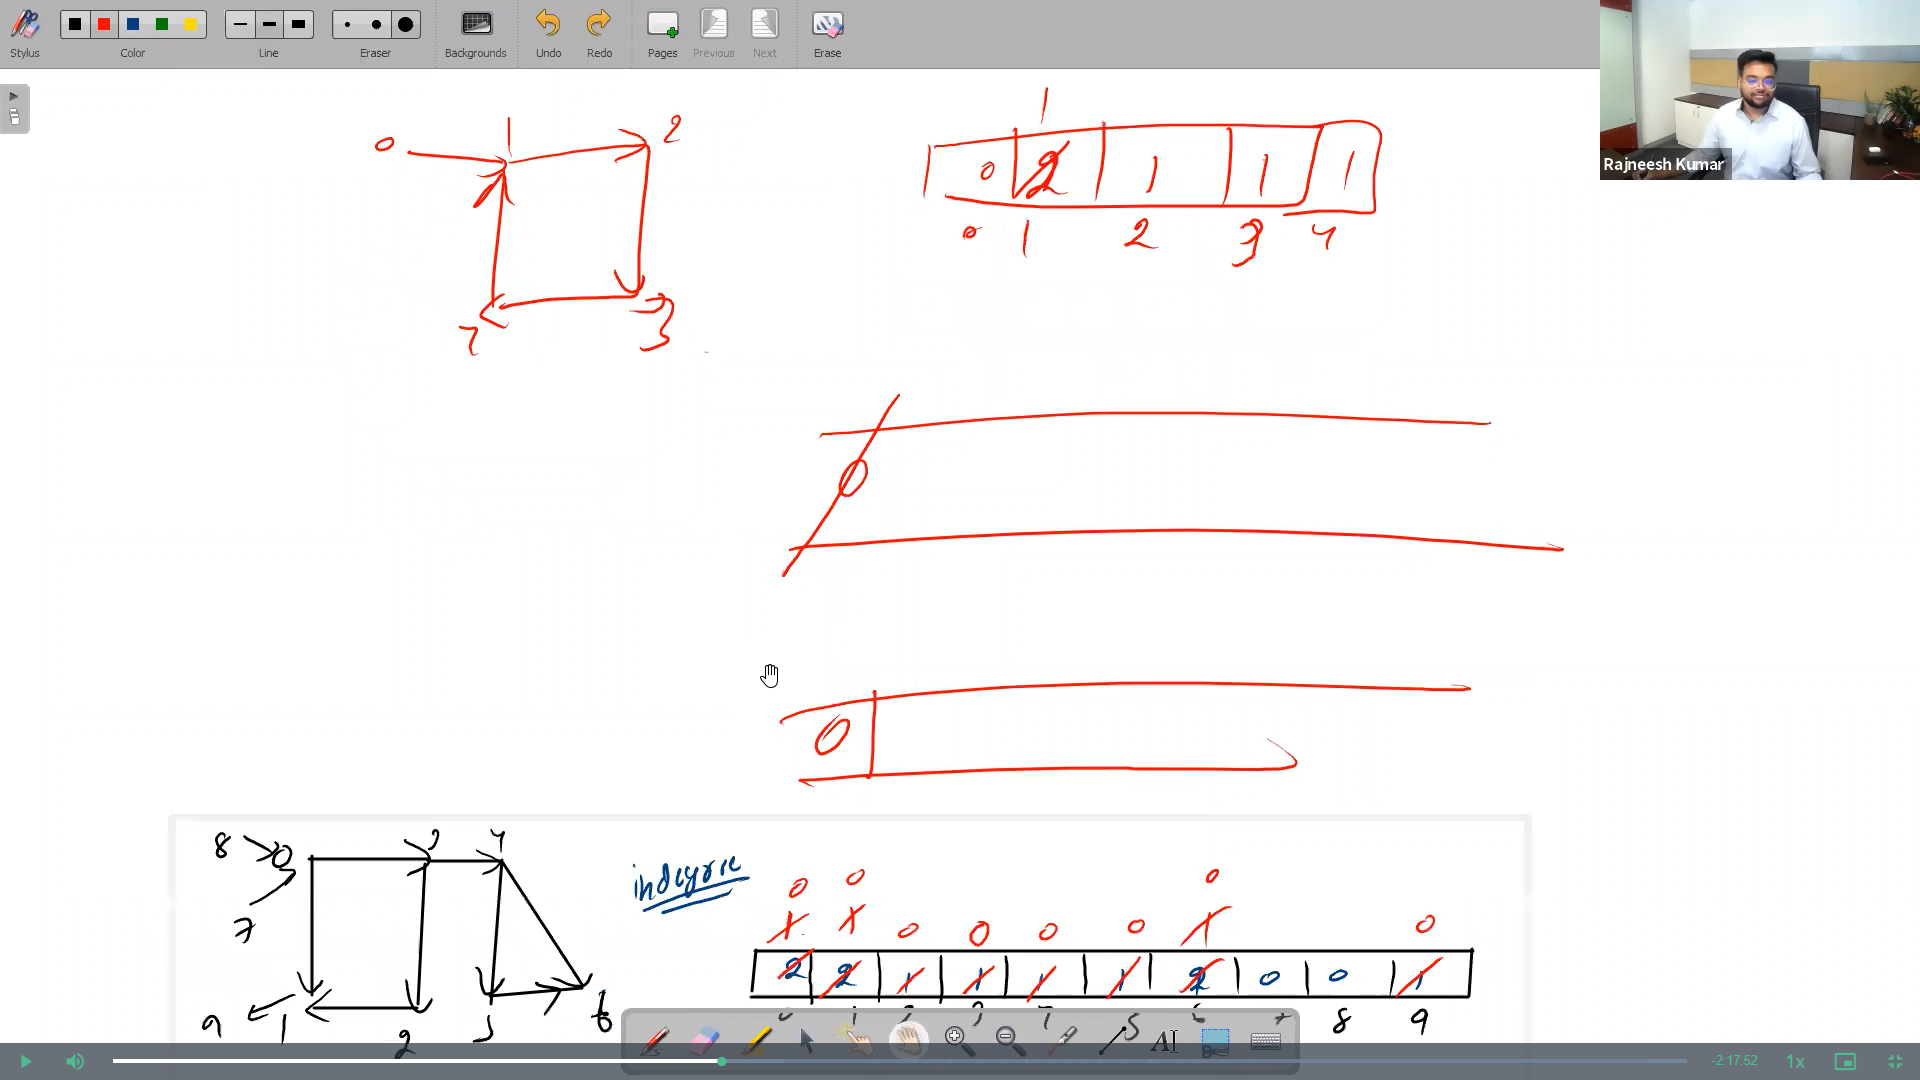 Stylus
Color
Line
Eraser
Backgrounds
Undo
Redo
Pages
Previous
Next
Erase
Rajneesh Kumar
0 1 2
4 3
1
0 2 1 1 1
0 1 2 3 4
0
0
8 0 3 4
7
9 1 2 5 6
indegree
0 0 0
1 1 0 0 0 0 1 0
2 2 1 1 1 1 2 0 0 1
0 1 2 3 4 5 6 7 8 9
AI
-2:17:52
1x